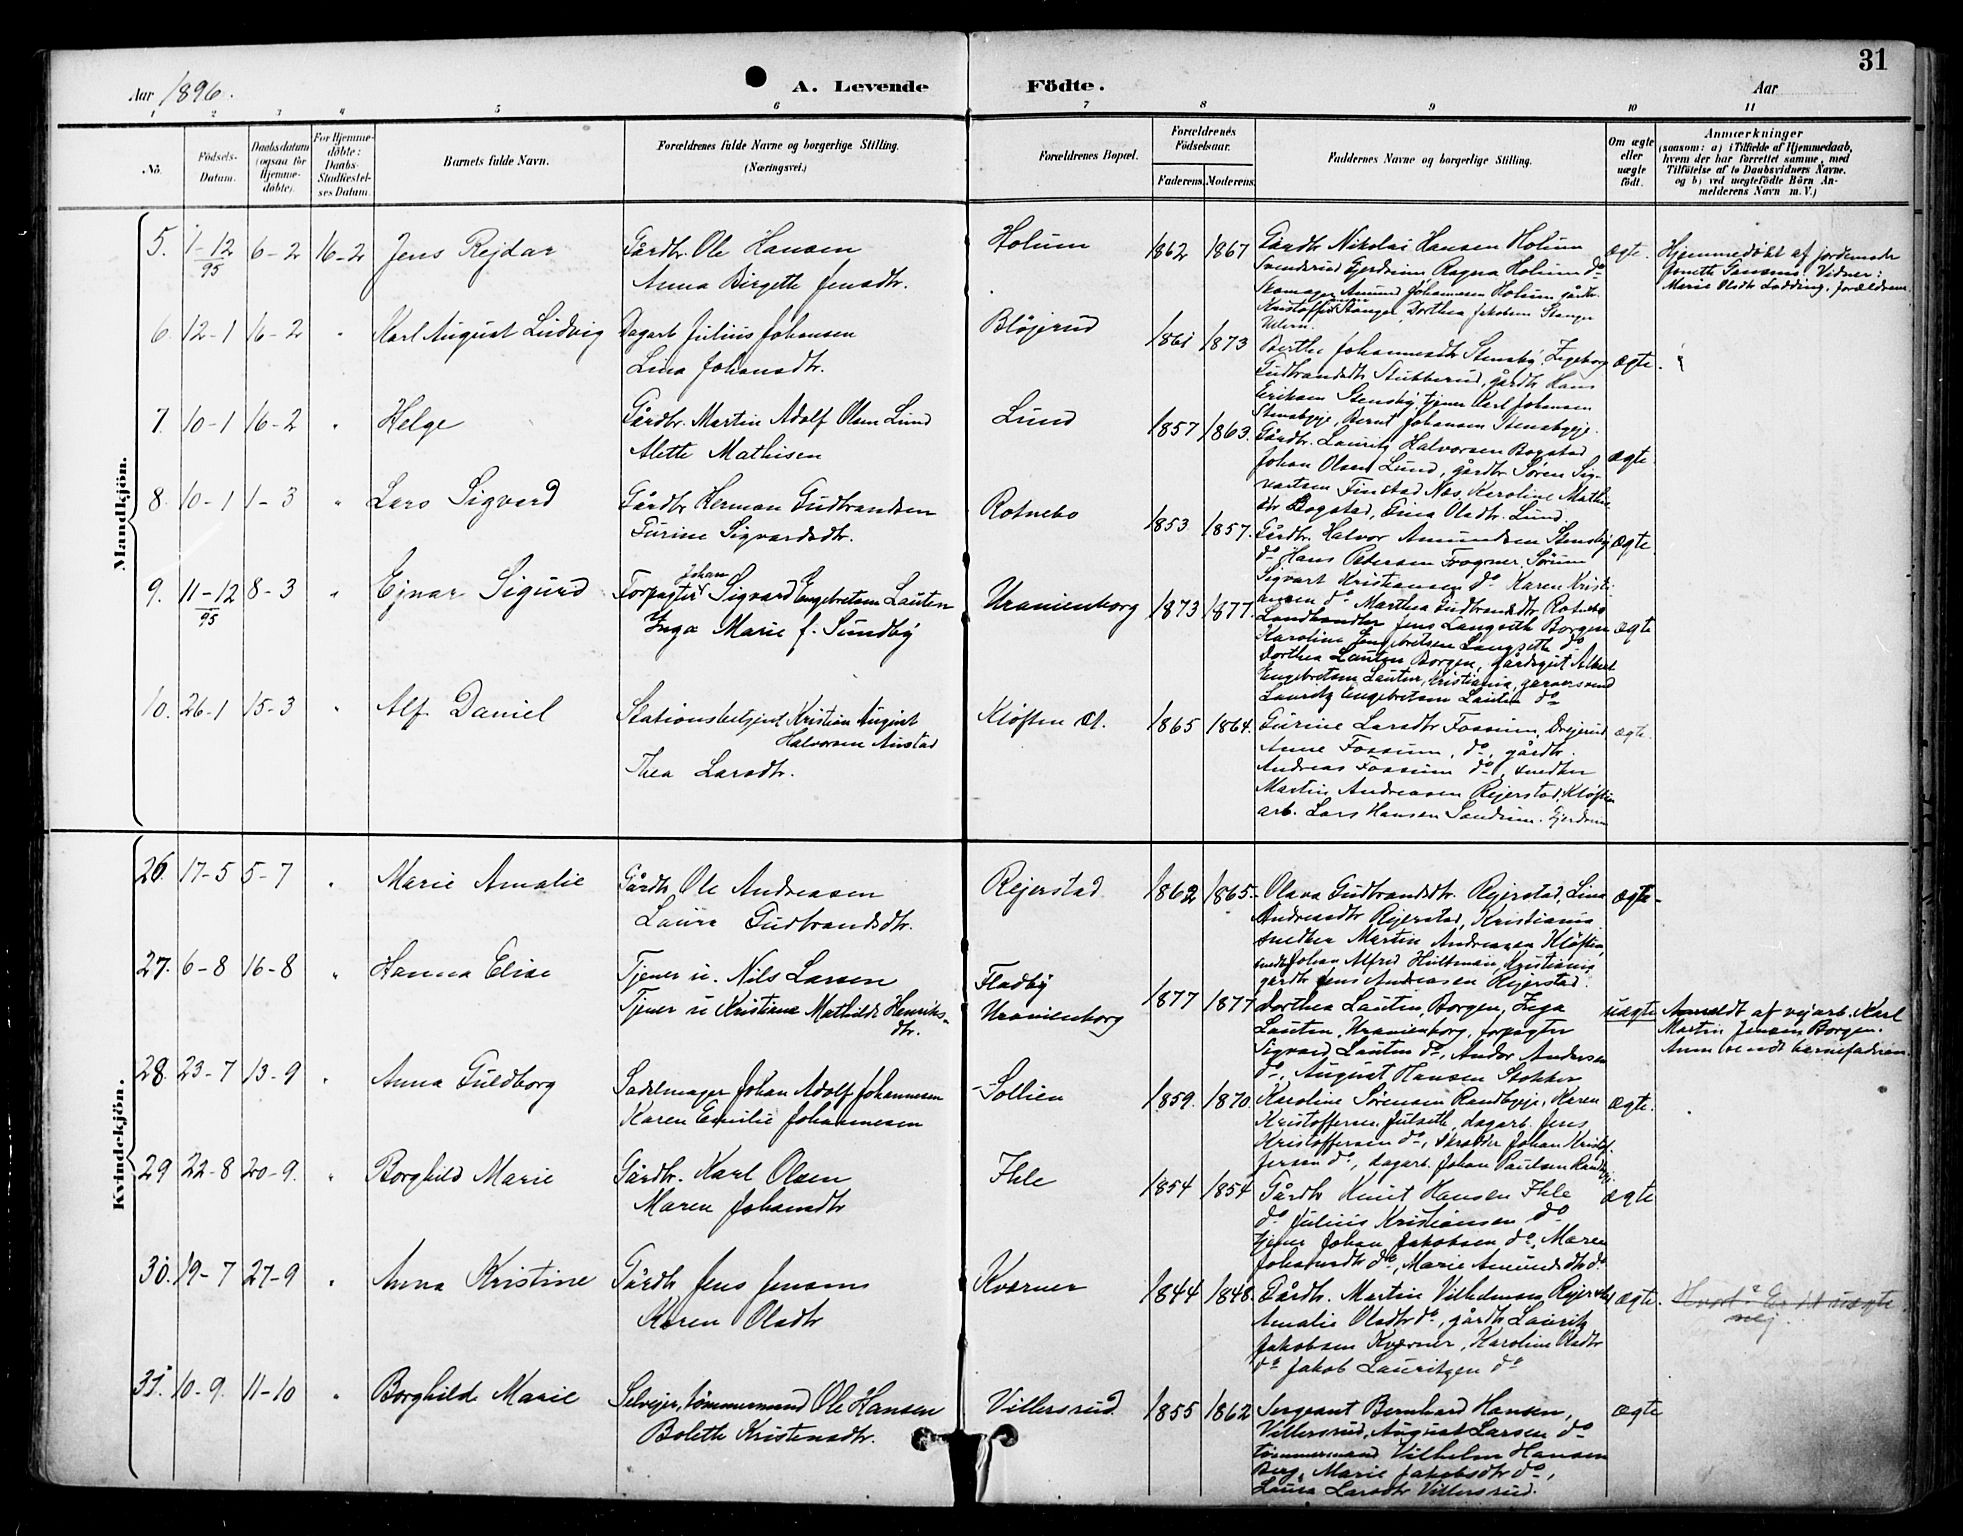 31
Aar 1896. A. Levende Födte. Aar
1 2 3 4 5 6 7 8 9 10 11
No. Födsels-Datum. Daabsdatum (ogsaa for Hjemmedöbte). For Hjemmedöbte: Daabs-Stadfæstelses Datum. Barnets fulde Navn. Forældrenes fulde Navne og borgerlige Stilling. (Næringsvei.) Forældrenes Bopæl. Forældrenes Födselsaar. Faderens. Moderens. Faddernes Navne og borgerlige Stilling. Om ægte eller uægte födt. Anmærkninger (saasom: a) i Tilfælde af Hjemmedaab, hvem der har forrettet samme, med Tilföielse af to Daabsvidners Navne, og b) ved uægtefödte Börn Anmelderens Navn m. V.)
Mandkjön.
5. 1-12 95 6-2 16-2 Jens Rejdar Gårdbr. Ole Hansen Holum 1862 1867 Gårdbr Nikolai Hansen Holum ægte. Hjemmedøbt af jordemoder
Anna Birgette Jensdtr. Svendsrud Gjerdrum Ragna Holum do Vidner:
Skomager Amund Johannesen Holum gårdbr. Marie Olsdtr Lodding, forældrene
Kristoffer Stanger, Dorthea Jakobsen Stanger
6. 12-1 16-2 " Karl August Ludvig Dagarb Julius Johansen Bløjerud 1861 1873 Berthe Johannesdtr Stensby, Ingeborg ægte.
Lina Johansdtr. Gudbrandsdtr Stubberud, gårdbr Hans
Eriksen Stensby, tjener Karl Johansen
Stensbyeje, Bernt Johansen Stensbyeje.
7. 10-1 16-2 " Helge Gårdbr. Martin Adolf Olsen Lund Lund 1857 1863. Gårdbr. Lauritz Halvorsen Bogstad ægte.
Alette Mathisen Johan Olsen Lund, gårdbr Søren Sig-
vartsen Finstad Næs, Karoline Mathis
dtr Bogstad, Gina Olsdtr. Lund.
8. 10-1 1-3 " Lars Sigvard Gårdbr Herman Gudbrandsen Rotnebo 1853 1857. Gårdbr. Halvor Amundsen Stensby ægte.
Turine Sigvardsdtr. do Hans Petersen Frogner, Sørum
Sigvart Kristiansen do Karen Kristi-
ansen do Marthea Gudbrandsdtr Rotnebo
9. 11-12 95 8-3 " Ejnar Sigurd Forpagter Johan Sigvard Engebretsen Lauten Uranienborg 1873 1877. Landhandler Jens Langseth Borgen ægte
Inga Marie f. Sundby Karoline Engebretsen Langseth do
Dorthea Lauten Borgen, gårdsgut Albert
Engebretsen Lauten, Kristiania, garversvend
Lauritz Engebretsen Lauten do
10. 26-1 15-3 " Alf Daniel Stationsbetjent Kristian August Kløften st. 1865 1864. Gurine Larsdtr Fossum, Drejerud ægte.
Halvorsen Aurstad Anne Fossum, do, gårdbr.
Thea Larsdtr. Andreas Fossum do, snedker
Martin Andreasen Rejerstad, Kløften
arb. Lars Hansen Sandrum. Gjerdrum
Kvindekjön.
26. 17-5 5-7 " Marie Amalie Gårdbr Ole Andreasen Rejerstad 1862 1865. Olava Gudbrandsdtr. Rejerstad, Lina ægte.
Laura Gudbrandsdtr. Andreasdtr Rejerstad, Kristiania
snedker Martin Andreasen Kløften,
snedker Johan Alfred Hultman, Kristiania
gårdbr Jens Andreasen Rejerstad.
27. 6-8 16-8 " Hanna Elise Tjener u. Nils Larsen Fladby 1877 1877 Dorthea Lauten, Borgen, Inga uægte Anmeldt af vejarb. Karl
Tjener u Kristiane Mathilde Henriks-dtr. Uranienborg Lauten, Uranienborg, forpagter Martin Jensen Borgen.
Sigvard Lauten do, Andor Andersen barnefaderen.
do, August Hansen Stokker
28. 23-7 13-9 " Anna Guldborg Sadelmager Johan Adolf Johannesen Sollien 1859. 1870. Karoline Sørensen Randbyeje, Karen ægte.
Karen Emilie Johannesen Kristoffersen Julseth, dagarb. Jens
Kristoffersen do, skrædder Johan Kristof-
fersen do, dagarb. Johan Paulsen Randbyeje
29 22-8 20-9. " Borghild Marie Gårdbr. Karl Olsen Ihle 1854 1854 Gårdbr Knut Hansen Ihle ægte
Maren Johansdtr do Julius Kristiansen do
tjener Johan Jakobsen do, Maren
Johansdtr do, Marie Amundsdtr do
30. 19-7 27-9 " Anna Kristine Gårdbr Jens Jensen Kværner 1844 1848. Gårdbr. Martin Vilhelmsen Rejerstad ægte. Hvad? Er det uægte
Karen Olsdtr Amalie Olsdtr do, gårdbr Lauritz nej.
Jakobsen Kværner, Karoline Olsdtr
do Jakob Lauritzen do
31. 10-9. 11-10 " Borghilde Marie Selvejer, tømmermand Ole Hansen Villersrud 1855 1862 Sergeant Bernhard Hansen, ægte
Bolette Kristensdtr. Villersrud, August Larsen do
tømmermand Vilhelm Hansen
Berg, Marie Jakobsdtr do,
Laura Larsdtr Villersrud.